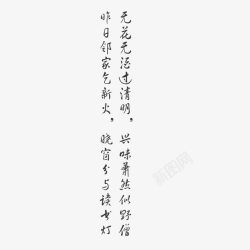 无花无酒过清明，兴味萧然似野僧
昨日邻家乞新火，晓窗分与读书灯
新图网